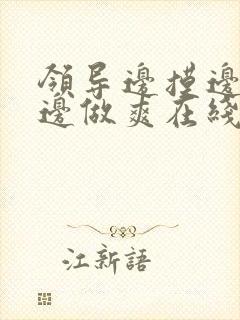 領导邊摸邊
邊做爽在綫
江新語